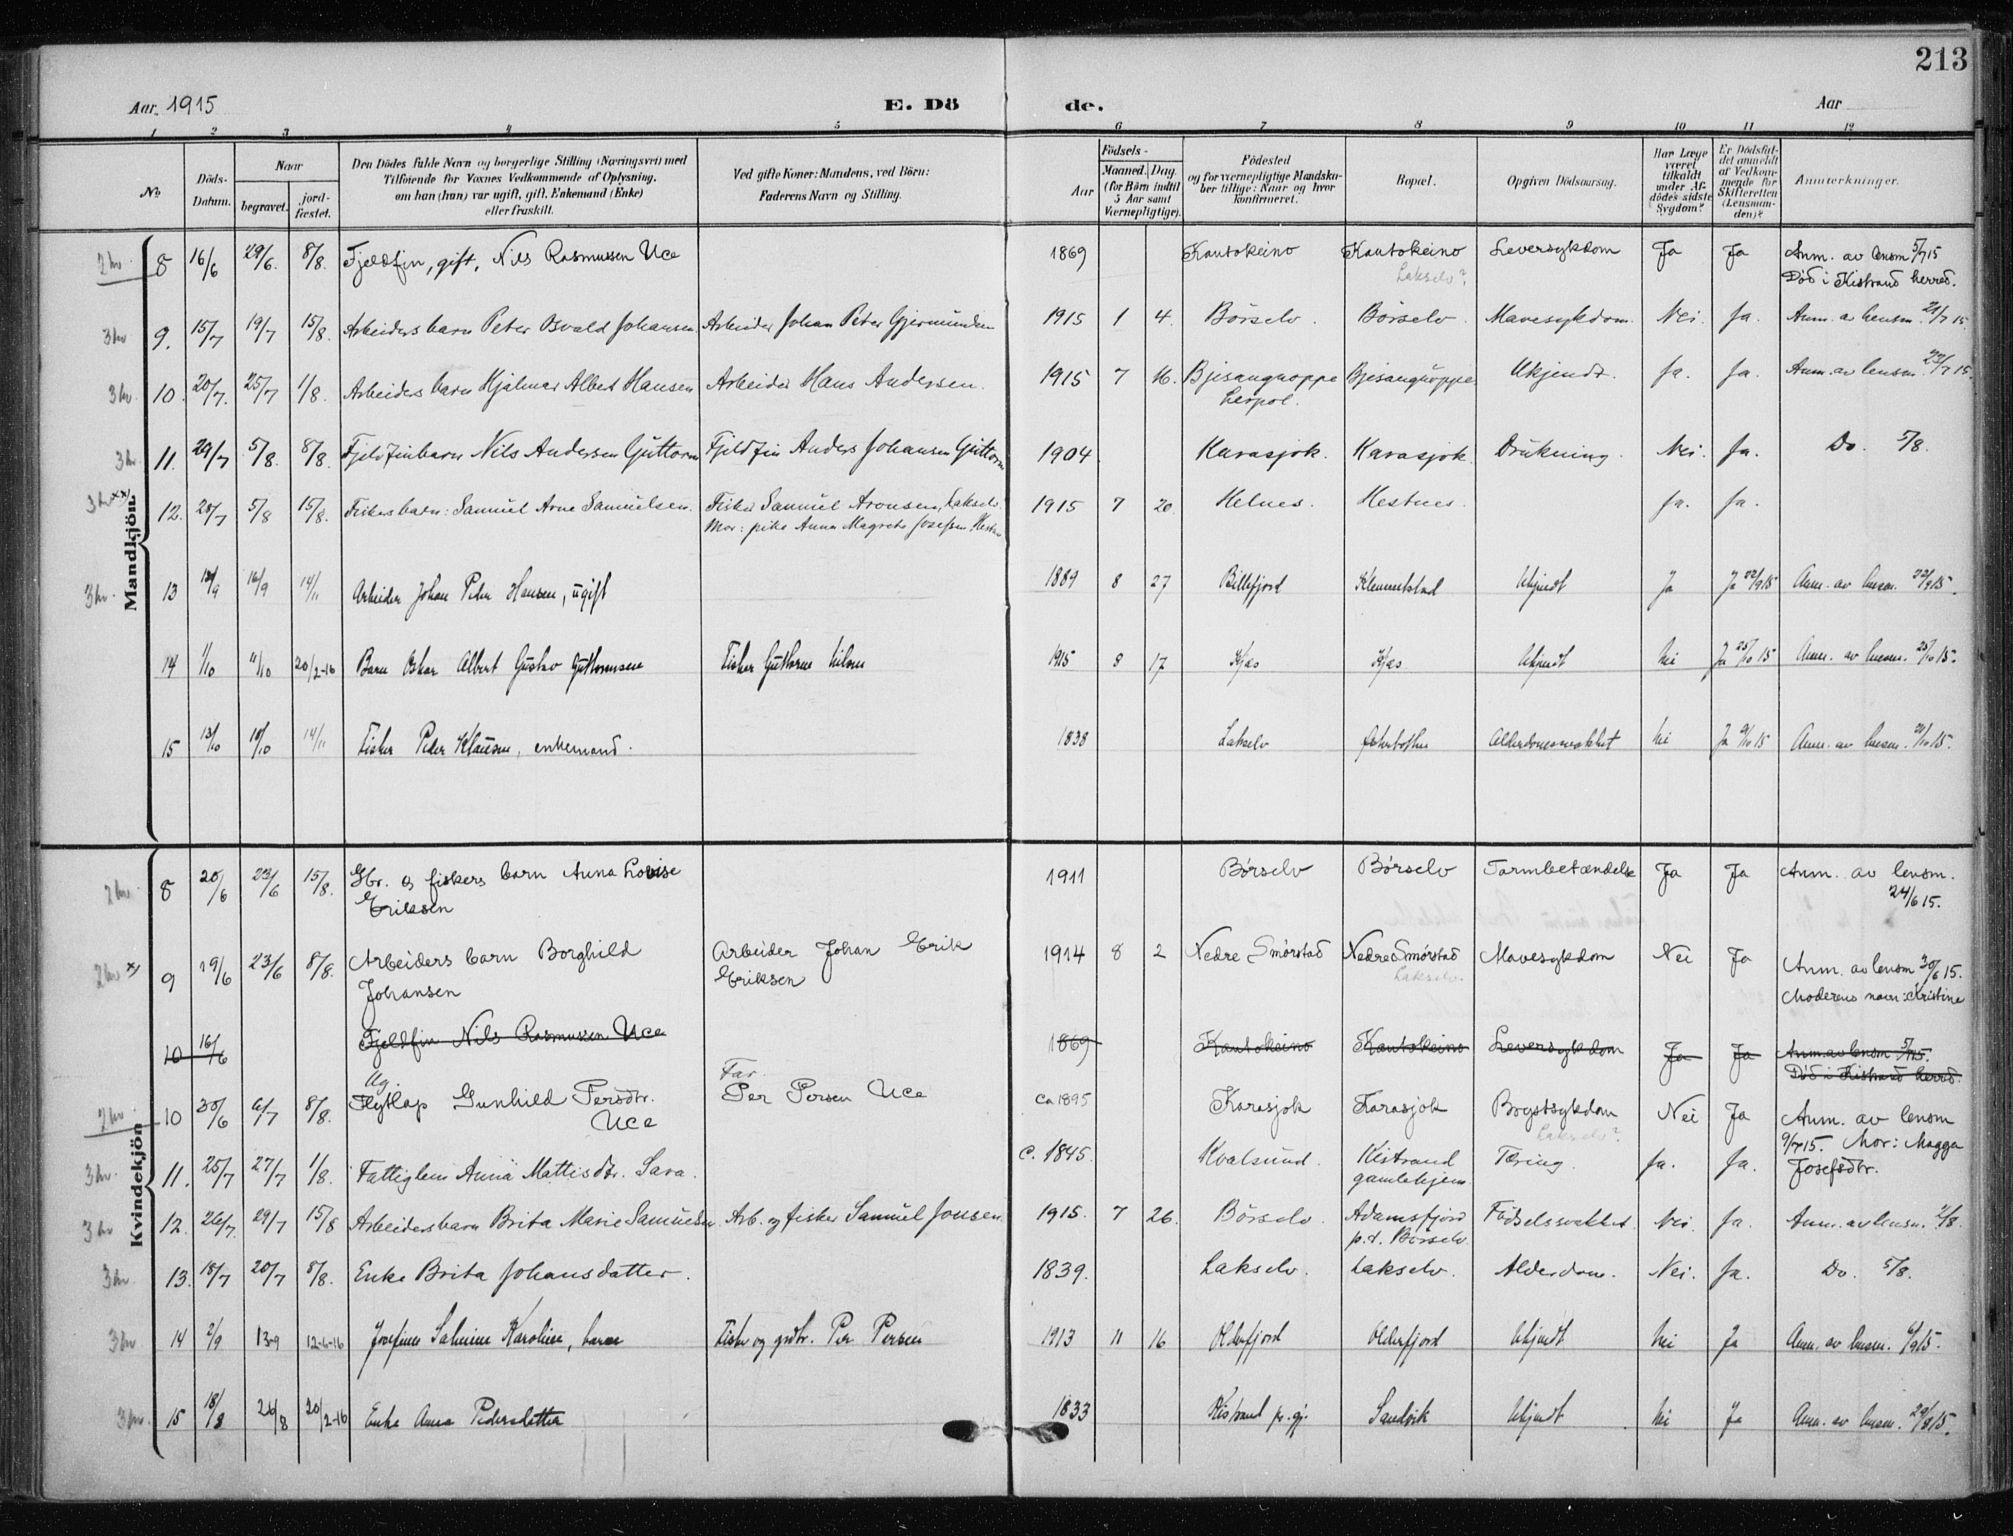 213
Aar. 1915 E. Dö de. Aar
1 2 3 4 5 6 7 8 9 10 11 12
No. Döds-Datum. Naar begravet. jord-fæstet. Den Dödes fulde Navn og borgerlige Stilling (Næringsvei) med Tilföiende for Voxnes Vedkommende af Oplysning, om han (hun) var ugift, gift, Enkemand (Enke) eller fraskilt. Ved gifte Koner: Mandens, ved Börn: Faderens Navn og Stilling. Födsels- Aar Maaned. Dag. (for Börn indtil 5 Aar samt Værnepligtige). Födested og for værnepligtige Mandskaber tillige: Naar og hvor konfirmeret. Bopæl. Opgiven Dödsaarsag. Har Læge været tilkaldt under Afdödes sidste Sygdom? Er Dödsfaldet anmeldt af Vedkommende for Skifteretten (Lensmanden)? Anmærkninger.
Mandkjön
8 16/6 29/6. 8/8. Fjeldfin, gift, Nils Rasmussen Uce 1869 Kautokeino Kautokeino Leversykdom Ja Ja Anm. av lensm 5/7 15
Lakselv? Död i Kistrand herred.
9. 15/7 19/7 15/8. Arbeiders barn Peter Osvald Johansen Arbeider Johan Peter 1915 1 4. Börselv. Börselv. Mavesykdom. Nei. Ja. Anm. av lensm. 21/7 15
10. 20/7. 25/7 1/8. Arbeiders barn Hjalmar Albert Hansen Arbeider Hans Andersen. 1915 7 16. Ukjendt. Ja. Ja. Anm. av lensm. 23/7 15.
11. 29/7 5/8. 8/8. Fjeldfinbarn Nils Andersen Guttorm Fjeldfin Anders Johansen Guttorm 1904 Karasjok. Karasjok. Drukning. Nei. Ja. Do. 5/8.
12. 20/7 5/8 15/8. Fiskers barn: Samuel Arne Samuelsen. Fisker Samuel Aronsen, Lakselv 1915 7 20. Helnes. Hestnes. Ja. Ja.
Mor: pike Anna Magrete Josefsen
13 16/9 14/11 Arbeider Johan Peder Hansen, ugift 1889 8 27 Billefjord Klemmetstad Ukjendt Ja Ja 22/9 15 Anm. av lensm. 22/9 15.
14 1/10 11/10 20/2-16 Barn Oskar Albert Gustav Guttormsen Fisker Guttorm Nilsen 1915 8 17 Kjæs Kjæs Ukjendt Nei Ja 25/10 15 Anm. av lensm. 25/10 15.
15 13/10 18/10 14/11 Fisker Peder Klausen, enkemand. 1838 Lakselv Alderdomssvakhet Nei Ja Anm. av lensm.
Kvindekjön
8 20/6 23/6 15/8. Gbr. og fiskers barn Anna Lovise 1911 Börselv Börselv Tarmbetændelse Ja Ja Anm. av lensm.
Eriksen 24/6 15.
9 19/6 23/6 8/8. Arbeiders barn Borghild Arbeider Johan Erik 1914 8 2 Nedre Smörstad Nedre Smörstad Mavesykdom Nei Ja Anm. av lensm 30/6 15.
Johansen Eriksen Lakselv. Moderens navn: Kristine
10 16/6 Fjeldfin Nils Rasmussen Uce 1869 Kautokeino Kautokeino Leversykdom Ja Ja Anm. av lensm 5/7 15.
Död i Kistrand herred.
Ug. Far
10 30/6 6/7 8/8. Flytlap Gunhild Persdtr. Per Persen Uce ca 1895 Karasjok Karasjok Brystsykdom Nei Ja Anm. av lensm
Uce Lakselv? 9/7 15. Mor: Magga
11. 25/7 27/7 1/8. Fattiglem Anna Mattisdtr. Sara. c. 1845. Kvalsund. Kistrand Tæring. Ja. Ja. Josefsdtr.
gamlehjem
12. 26/7. 29/7 15/8 Arbeidersbarn Brita Marie Samuelsen. Arb. og fisker Samuel Jonsen. 1915. 7 26. Börselv. Adamsfjord Födselssvakhet. Nei. Ja. Anm. av lensm. 2/8.
p.t. Börselv.
13. 18/7 20/7 8/8. Enke Brita Johansdatter. 1839. Lakselv. Lakselv. Alderdom. Nei. Ja. Do. 5/8.
14 2/9 13-9 12-6-16 Josefine Salmine Karoline, barn Fisker og grdbr. Per Persen 1913 11 16 Olderfjord Olderfjord Ukjendt Nei Ja Anm. av lensm. 6/9 15.
15 18/8 26/8 20/2-16 Enke Anna Pedersdatter 1833 Kistrand pr.gj. Sandvik Ukjendt Nei Ja Anm. av lensm. 29/8 15.